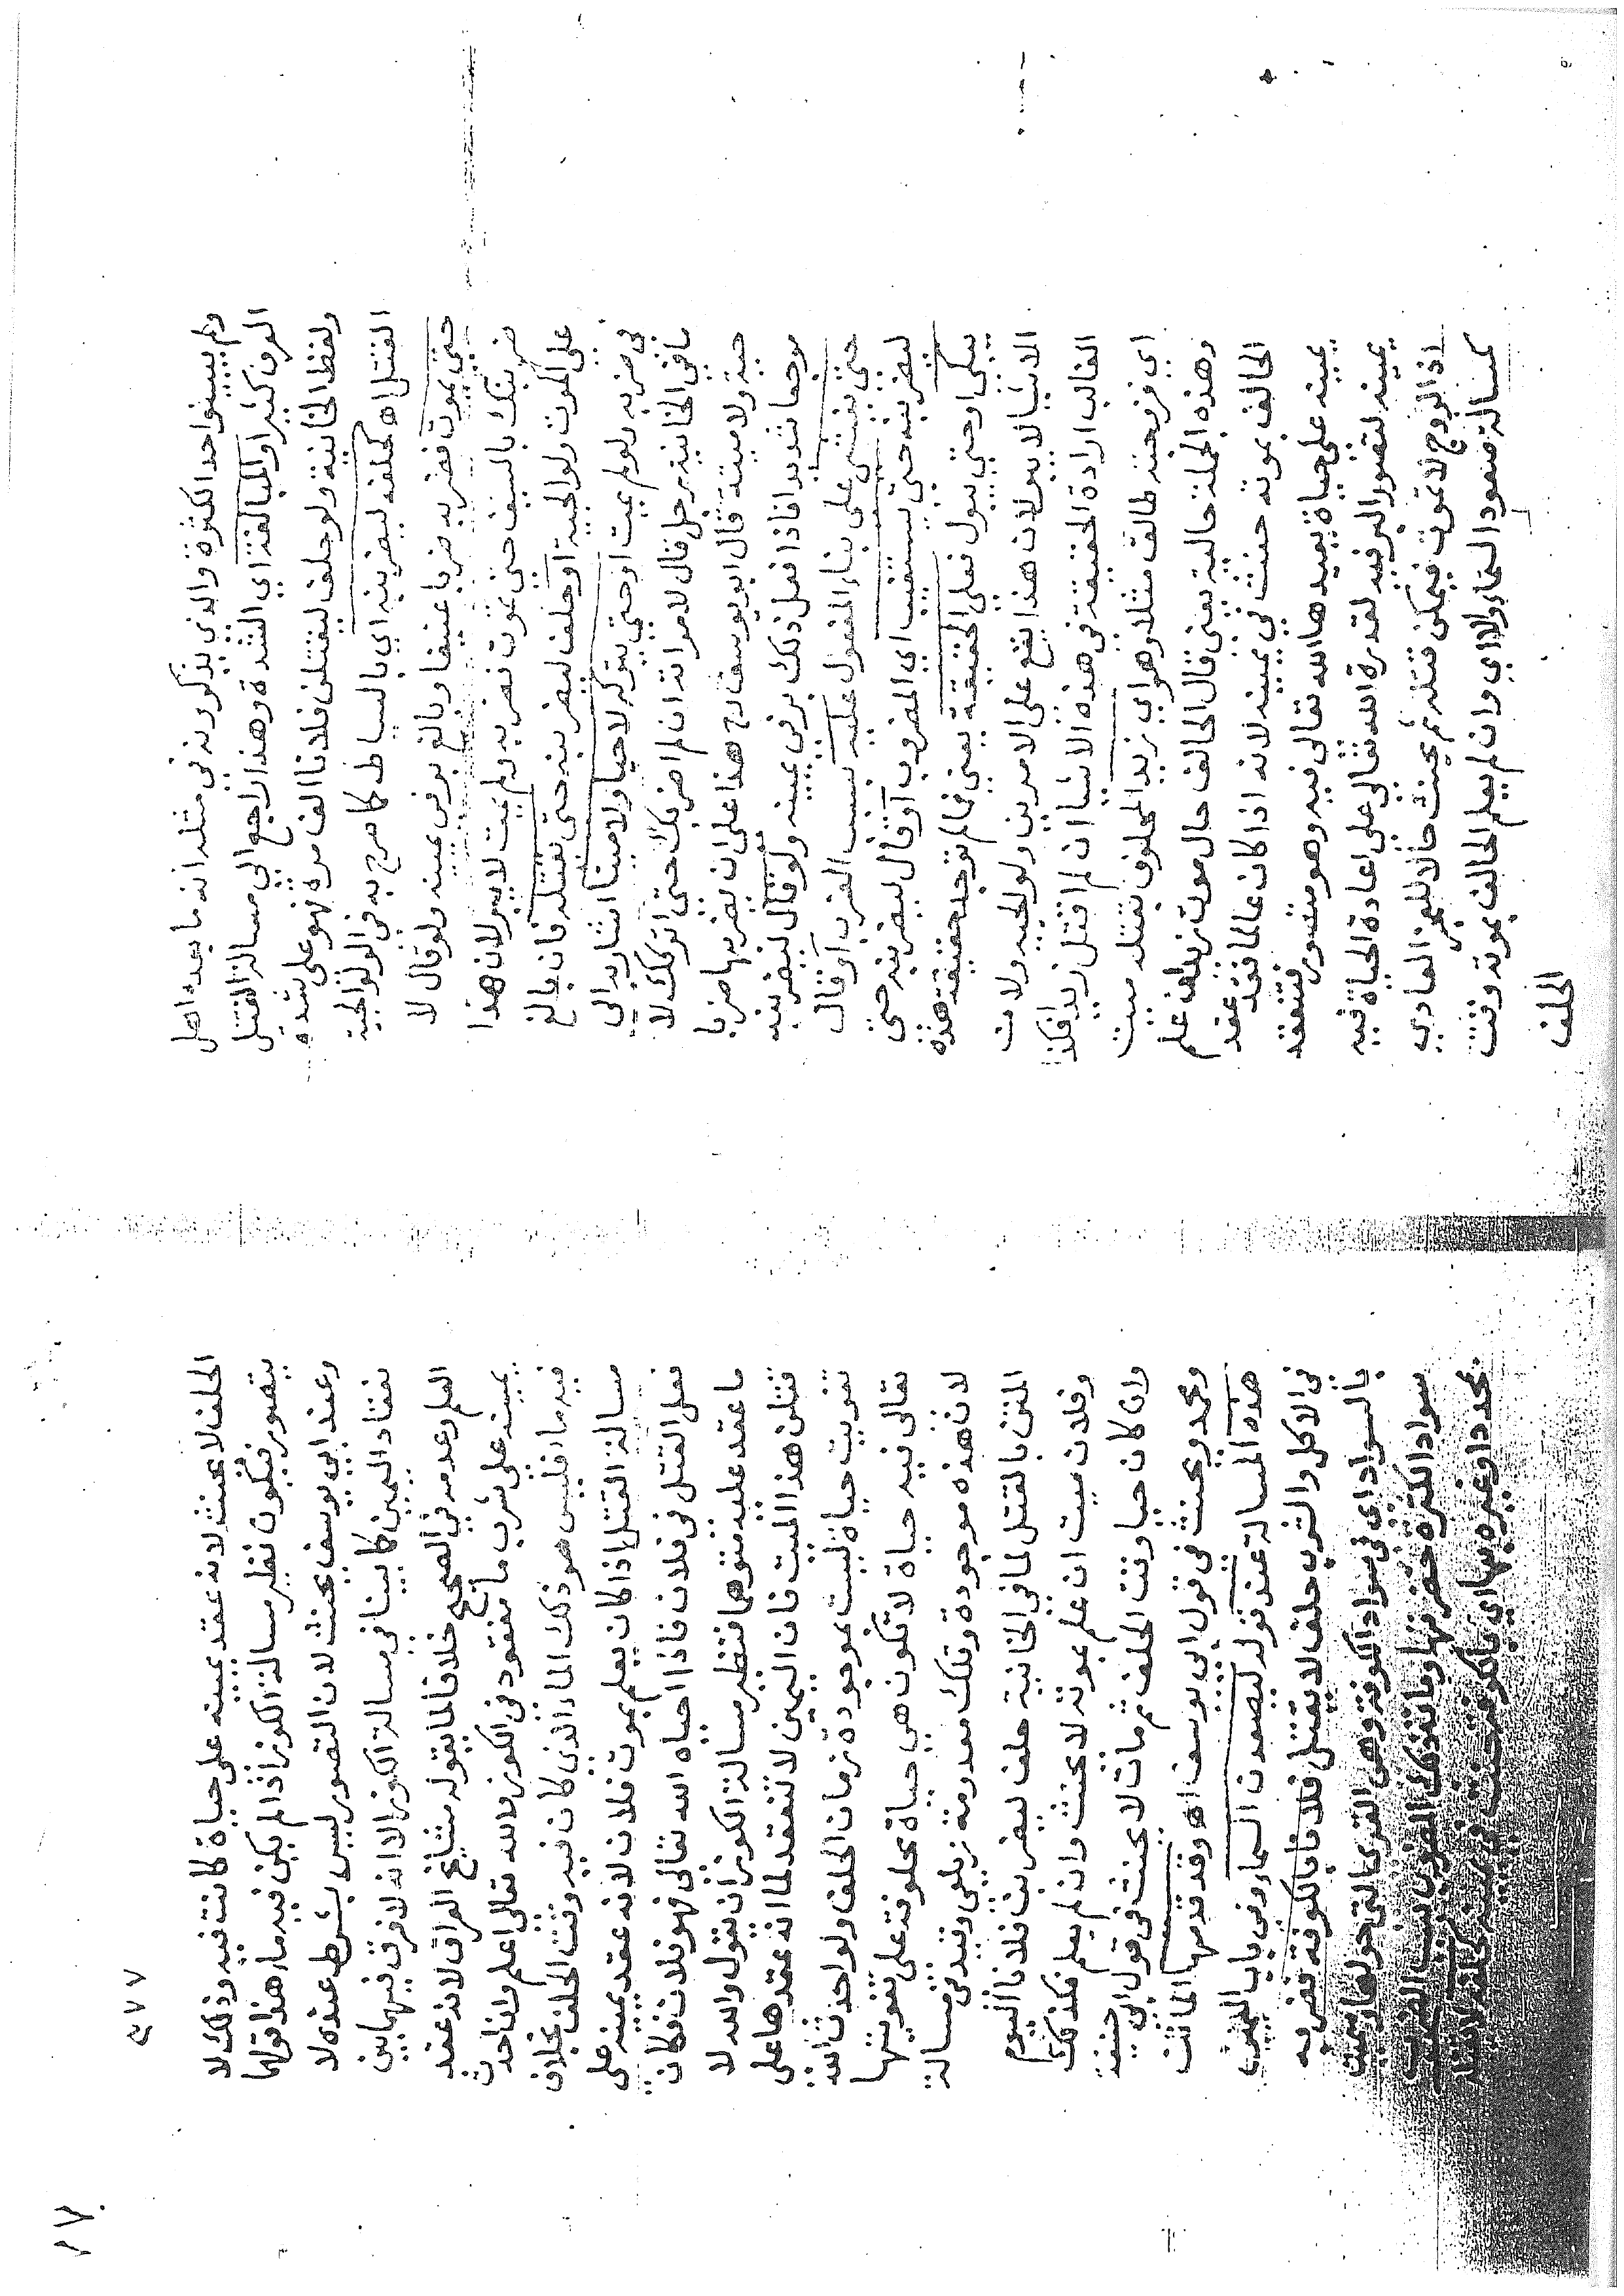 ولم يبينوا حد الكثرة والذي يذكرونه في مثله انه ما يعده اهل
العرف كثيرا والمبالغة اي الشدة وهذا راجع الى مسالة القتل
ولفظ الخانية ولو حلف ليقتلن فلانا الف مرة فهو على شدة
القتل اه كحلفه ليضربنه اي بالسياط كما صرح به في الولوالجية
حتى يموت فضربه ضربا عنيفا وبالغ بر في يمينه ولو قال لا
ضربنك بالسيف حتى تموت فضربه ولم يمت لا يبر لان هذا
على الموت ولوالجية او حلف ليضربنه حتى يقتله فان بالغ
في ضربه ولو لم يمت او حتى يتركه لا حيا ولا ميتا اشار به الى
ما في الخانية رجل قال لامراته ان لم اضربك حتى اتركك لا
حية ولا ميتة قال ابو يوسف رح هذا على ان يضربها ضربا
موجعا شديدا فاذا فعل ذلك بر في يمينه ولو قال ليضربنه
حتى يغشى على بناء المفعول عليه بسبب الضرب او قال
ليضربنه حتى يستغيث اي المضروب او قال ليضربنه حتى
يبكي او حتى يبول فعلى الحقيقة يعني فما لم توجد حقيقة هذه
الاشيا لا يبر لان هذا يقع على الامرين ولوالجيه ولا مت
الغالب ارادة الحقيقة في هذه الاشيا ان لم اقتل زيدا فكذا
اي فزوجته طالق مثلا وهو اي زيد المحلوف بقتله ميت
وهذه الجملة حالية يعني قال الحالف حال موت زيد ان علم
الحالف بموته حنث في يمينه لانه اذا كان عالما فقد عقد
يمينه على حياة يعيدها الله تعالى فيه وهو متصور فتنعقد
يمينه لتصور البر فيه لقدرة الله تعالى على اعادة الحياة فيه
اذ الروح لا تموت فيمكن قتله ثم يحنث حالا للعجز العادي
كمسالة صعود السماء والا اي وان لم يعلم الحالف بموته وقت
الحلف
٤٧٧
الحلف لا يحنث لانه عقد يمينه على حياة كانت فيه وذلك لا
يتصور فيكون نظير مسالة الكوز اذا لم يكن فيه ماء هذا قولهما
وعند ابي يوسف يحنث لان التصور ليس بشرط عنده لا
نعقاد اليمين كما بينا في مسالة الكوز الا انه لا فرق فيها بين
العلم وعدمه في الصحيح خلافا لما يقوله مشايخ العراق لانه عقد
يمينه على شرب ما مفقود في الكوز والله تعالى اعلم وان احدث
فيه ماء فليس هو ذلك الماء الذي كان فيه وقت الحلف بخلاف
مسالة القتل اذا كان يعلم بموت فلان لانه عقد يمينه على
فعل القتل في فلان فاذا احياه الله تعالى فهو فلان فكان
ما عقد عليه متوهما فنظير مسالة الكوز ان يقول والله لا
قتلن هذا الميت فان اليمين لا تنعقد لما انه عقدها على
تفويت حياة ليست بموجودة زمان الحلف ولو احدث الله
تعالى فيه حياة لا تكون هي حياة محلوفة على تفويتها
لان هذه موجودة وتلك معدومة زيلعي وقيد في مسالة
المتن بالقتل لما في الخانية حلف ليضربن فلانا اليوم
وفلان ميت ان علم بموته لا يحنث وان لم يعلم فكذلك
وان كان حيا وقت الحلف ثم مات لا يحنث في قول ابي حنيفة
ومحمد ويحنث في قول ابي يوسف اه وقد قدمها الماتن
هذه المسالة عند قوله ليصعدن السماء وفي باب اليمين
في الاكل والشرب حلف لا يقتل فلانا بالكوفة فضربه
بالسواد اي في سواد الكوفة وهي القرى التي حولها وسميت
سواد الكثرة خضرتها وما